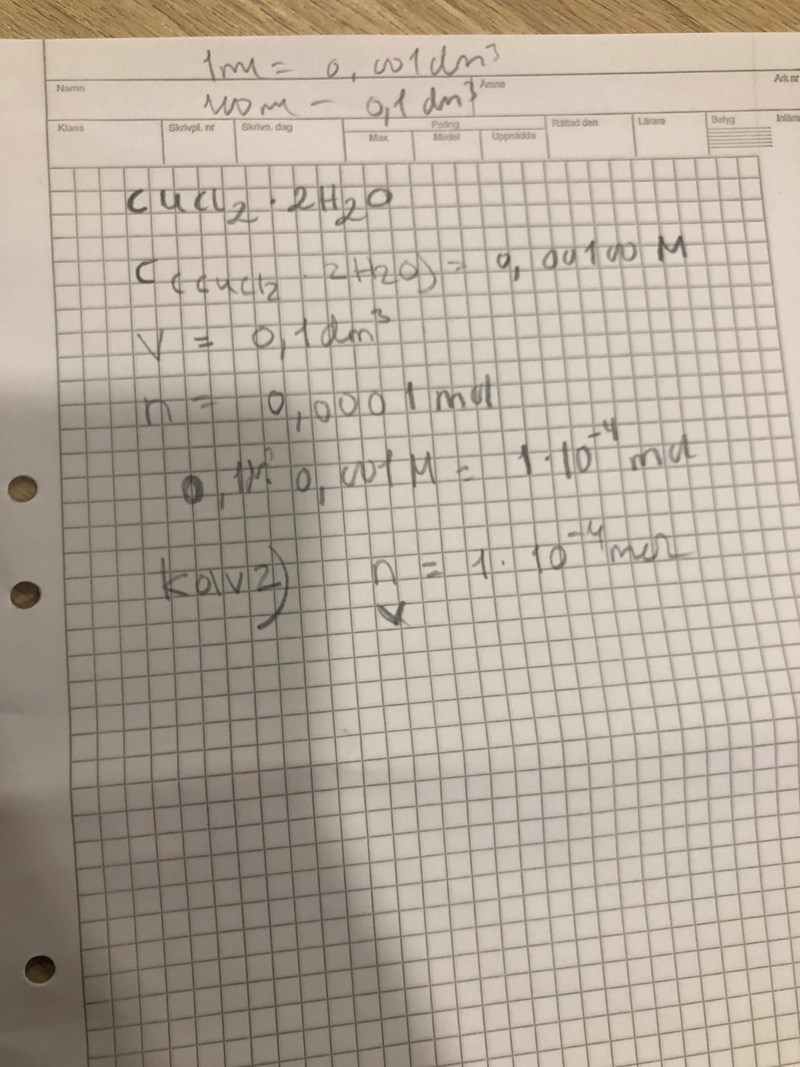 1ml = 0,001dm³
Namn
Ämne
Ark nr
100ml - 0,1 dm³
Klass
Skrivpl. nr
Skrivn. dag
Poäng
Max
Medel
Uppnådda
Rättad den
Lärare
Betyg
Inläm
CuCl2 · 2H2O
C(CuCl2 · 2H2O) = 0,00100 M
V = 0,1dm³
n = 0,0001 mol
0,1 · 0,001 M = 1·10⁻⁴ mol
Kolv2) n = 1 · 10⁻⁴ mol
V